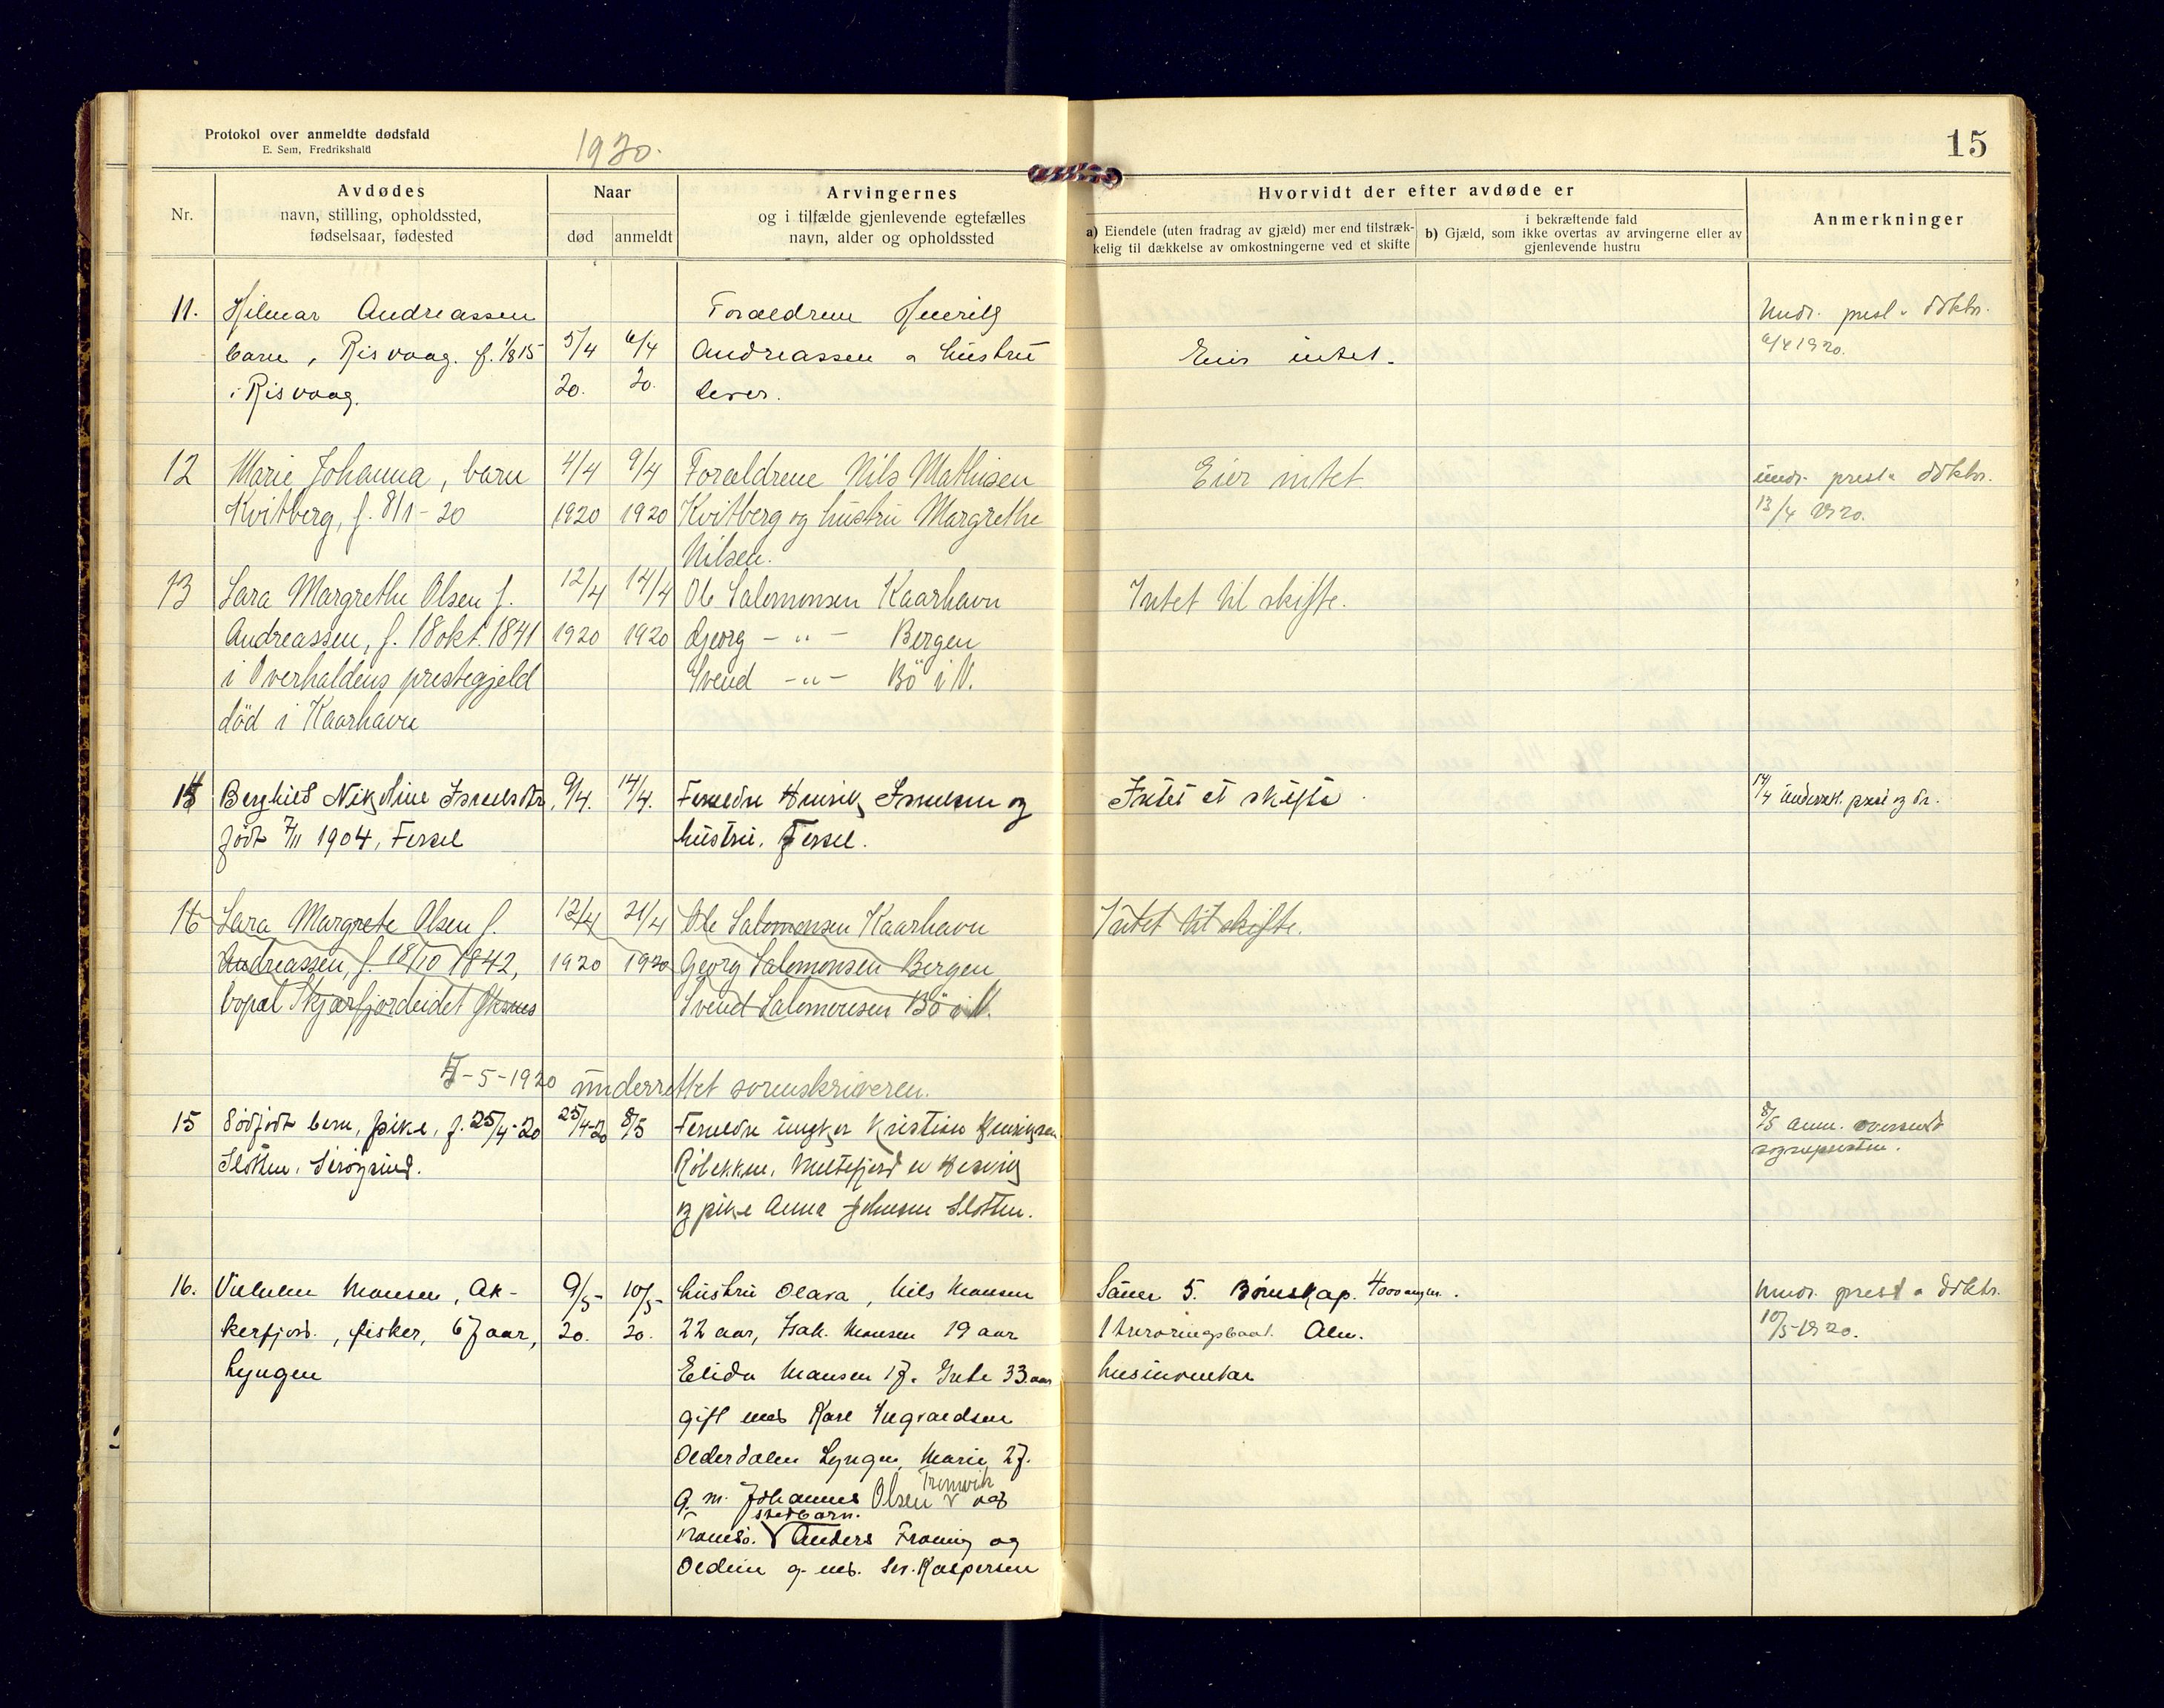 Protokol over anmeldte dødsfald
E. Sem, Fredrikshald
1920.
15
Nr.
Avdødes
navn, stilling, opholdssted,
fødselsaar, fødested
Naar
død
anmeldt
Arvingernes
og i tilfælde gjenlevende egtefælles
navn, alder og opholdssted
Hvorvidt der efter avdøde er
a) Eiendele (uten fradrag av gjæld) mer end tilstræk-
kelig til dækkelse av omkostningerne ved et skifte
i bekræftende fald
b) Gjæld, som ikke overtas av arvingerne eller av
gjenlevende hustru
Anmerkninger
11. Hilmar Andreassen
barn, Risvaag. f. 1/8 15
i Risvaag.
5/4
20.
6/4
20.
Foraeldrene Henrik
Andreassen & hustru
lever.
Eier intet.
Undr. prest & doktor.
6/4 1920.
12 Marie Johanna, barn
Kvitberg, f. 8/1 - 20
4/4
1920
9/4
1920
Foraeldrene Nils Mathisen
Kvitberg og hustru Margrethe
Nilsen.
Eier intet.
undr. prest & doktor.
13/4 1920.
13 Sara Margrethe Olsen f.
Andreassen, f. 18 okt. 1841
i Overhaldens prestegjeld
död i Kaarhavn
12/4
1920
14/4
1920
Ole Salomonsen Kaarhavn
Georg - " - Bergen
Svend - " - Bö i V.
Intet til skifte.
14 Berghild Nikoline Israelsdtr.
født 7/11 1904, Fersel
9/4.
14/4.
Foreldre Henrik Israelsen og
hustru, Fersel.
Intet at skifte.
14/4 underret. prest og dr.
16 Sara Margrete Olsen f.
Andreassen, f. 18/10 1842,
bopæl Skjærfjordeidet Øksnes
12/4
1920
21/4
1920
Ole Salomonsen Kaarhavn
Georg Salomonsen Bergen
Svend Salomonsen Bö i V.
Intet til skifte.
-5-1920 underrettet sorenskriveren.
15 Dødfødt barn, pike, f. 25/4-20
Slotten,
25/4-20
8/5
Foreldre ungkar Kristian Henriksen
og pike Anna Johnsen Slotten.
8/5 anm. oversendt
sognepresten.
16. Vilhelm Monsen, Ak-
kerfjord., fisker, 67 aar,
Lyngen
9/5-
20.
10/5-
20.
hustru Olava, Nils Monsen
22 aar, Isak Monsen 19 aar
Elida Monsen 17. Grete 33 aar
gift med Karl Ingvaldsen
Olderdalen Lyngen, Marie 27.
g. m. Johannes Olsen Tromvik
Tromsö. stedbarn. Anders Froning og
g. med. Kaspersen
Sauer 5. Børuskap. 4000 angler.
1 treroringsbaat. Alm.
husinventar
Undr. prest & doktor.
10/5-1920.